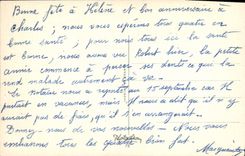 Bonne fête à Hélène et bon anniversaire à
Charles ; nous vous espérons tous quatre en
bonne santé ; pour nous tous ici la santé
est bonne, nous avons vu Robert hier, la petite
année commence à pousser ses dents ce qui la
rend malade autrement ça va.
Le notaire nous a reporté au 15 septembre car il
partait en vacances, mais il nous a dit qu'il n'y
aurait pas de frais, qu'il s'en arrangerait.
Donnez nous de vos nouvelles - Nous vous
embrassons tous les quatre bien fort.
Marguerite